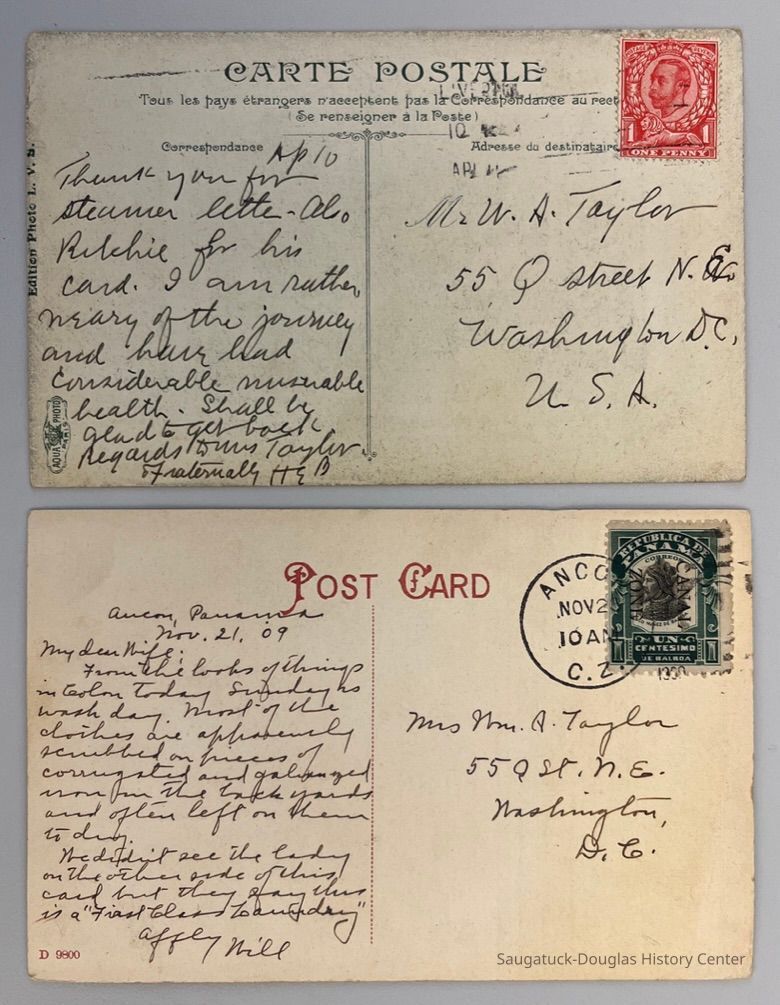 CARTE POSTALE
Tous les pays étrangers n'acceptent pas la Correspondance au rect
(Se renseigner à la Poste)
Correspondance
Adresse du destinataire
Edition Photo L. V. S.
Ap 10
Thank you for
steamer letter - Also
Ritchie for his
card. I am rather
weary of the journey
and have had
considerable miserable
health. Shall be
glad to get back
Regards to Mrs Taylor
Fraternally HGB
AQUA PHOTO
PARIS
LIVERPOOL
10
Mr W. A. Taylor
55 Q street N.E.
Washington D.C.
U. S. A.
POSTAGE
1 1
ONE PENNY
POST CARD
Ancon, Panama
Nov. 21, 09
My dear Wife:
From the looks of things
in Colon today Sunday is
wash day. Most of the
clothes are apparently
scrubbed on pieces of
corrugated and galvanized
iron in the back yards
and often left on them
to dry.
We didn't see the lady
on the other side of this
card but they say this
is a "First Class Laundry"
Affly Will
D 9800
ANCO
NOV 2
10 AM
C. Z.
REPUBLICA DE
PANAMA
CORREOS
CANAL
ZONE
UN
CENTESIMO
DE BALBOA
Mrs Wm. A. Taylor
55 Q St. N.E.
Washington,
D. C.
Saugatuck-Douglas History Center